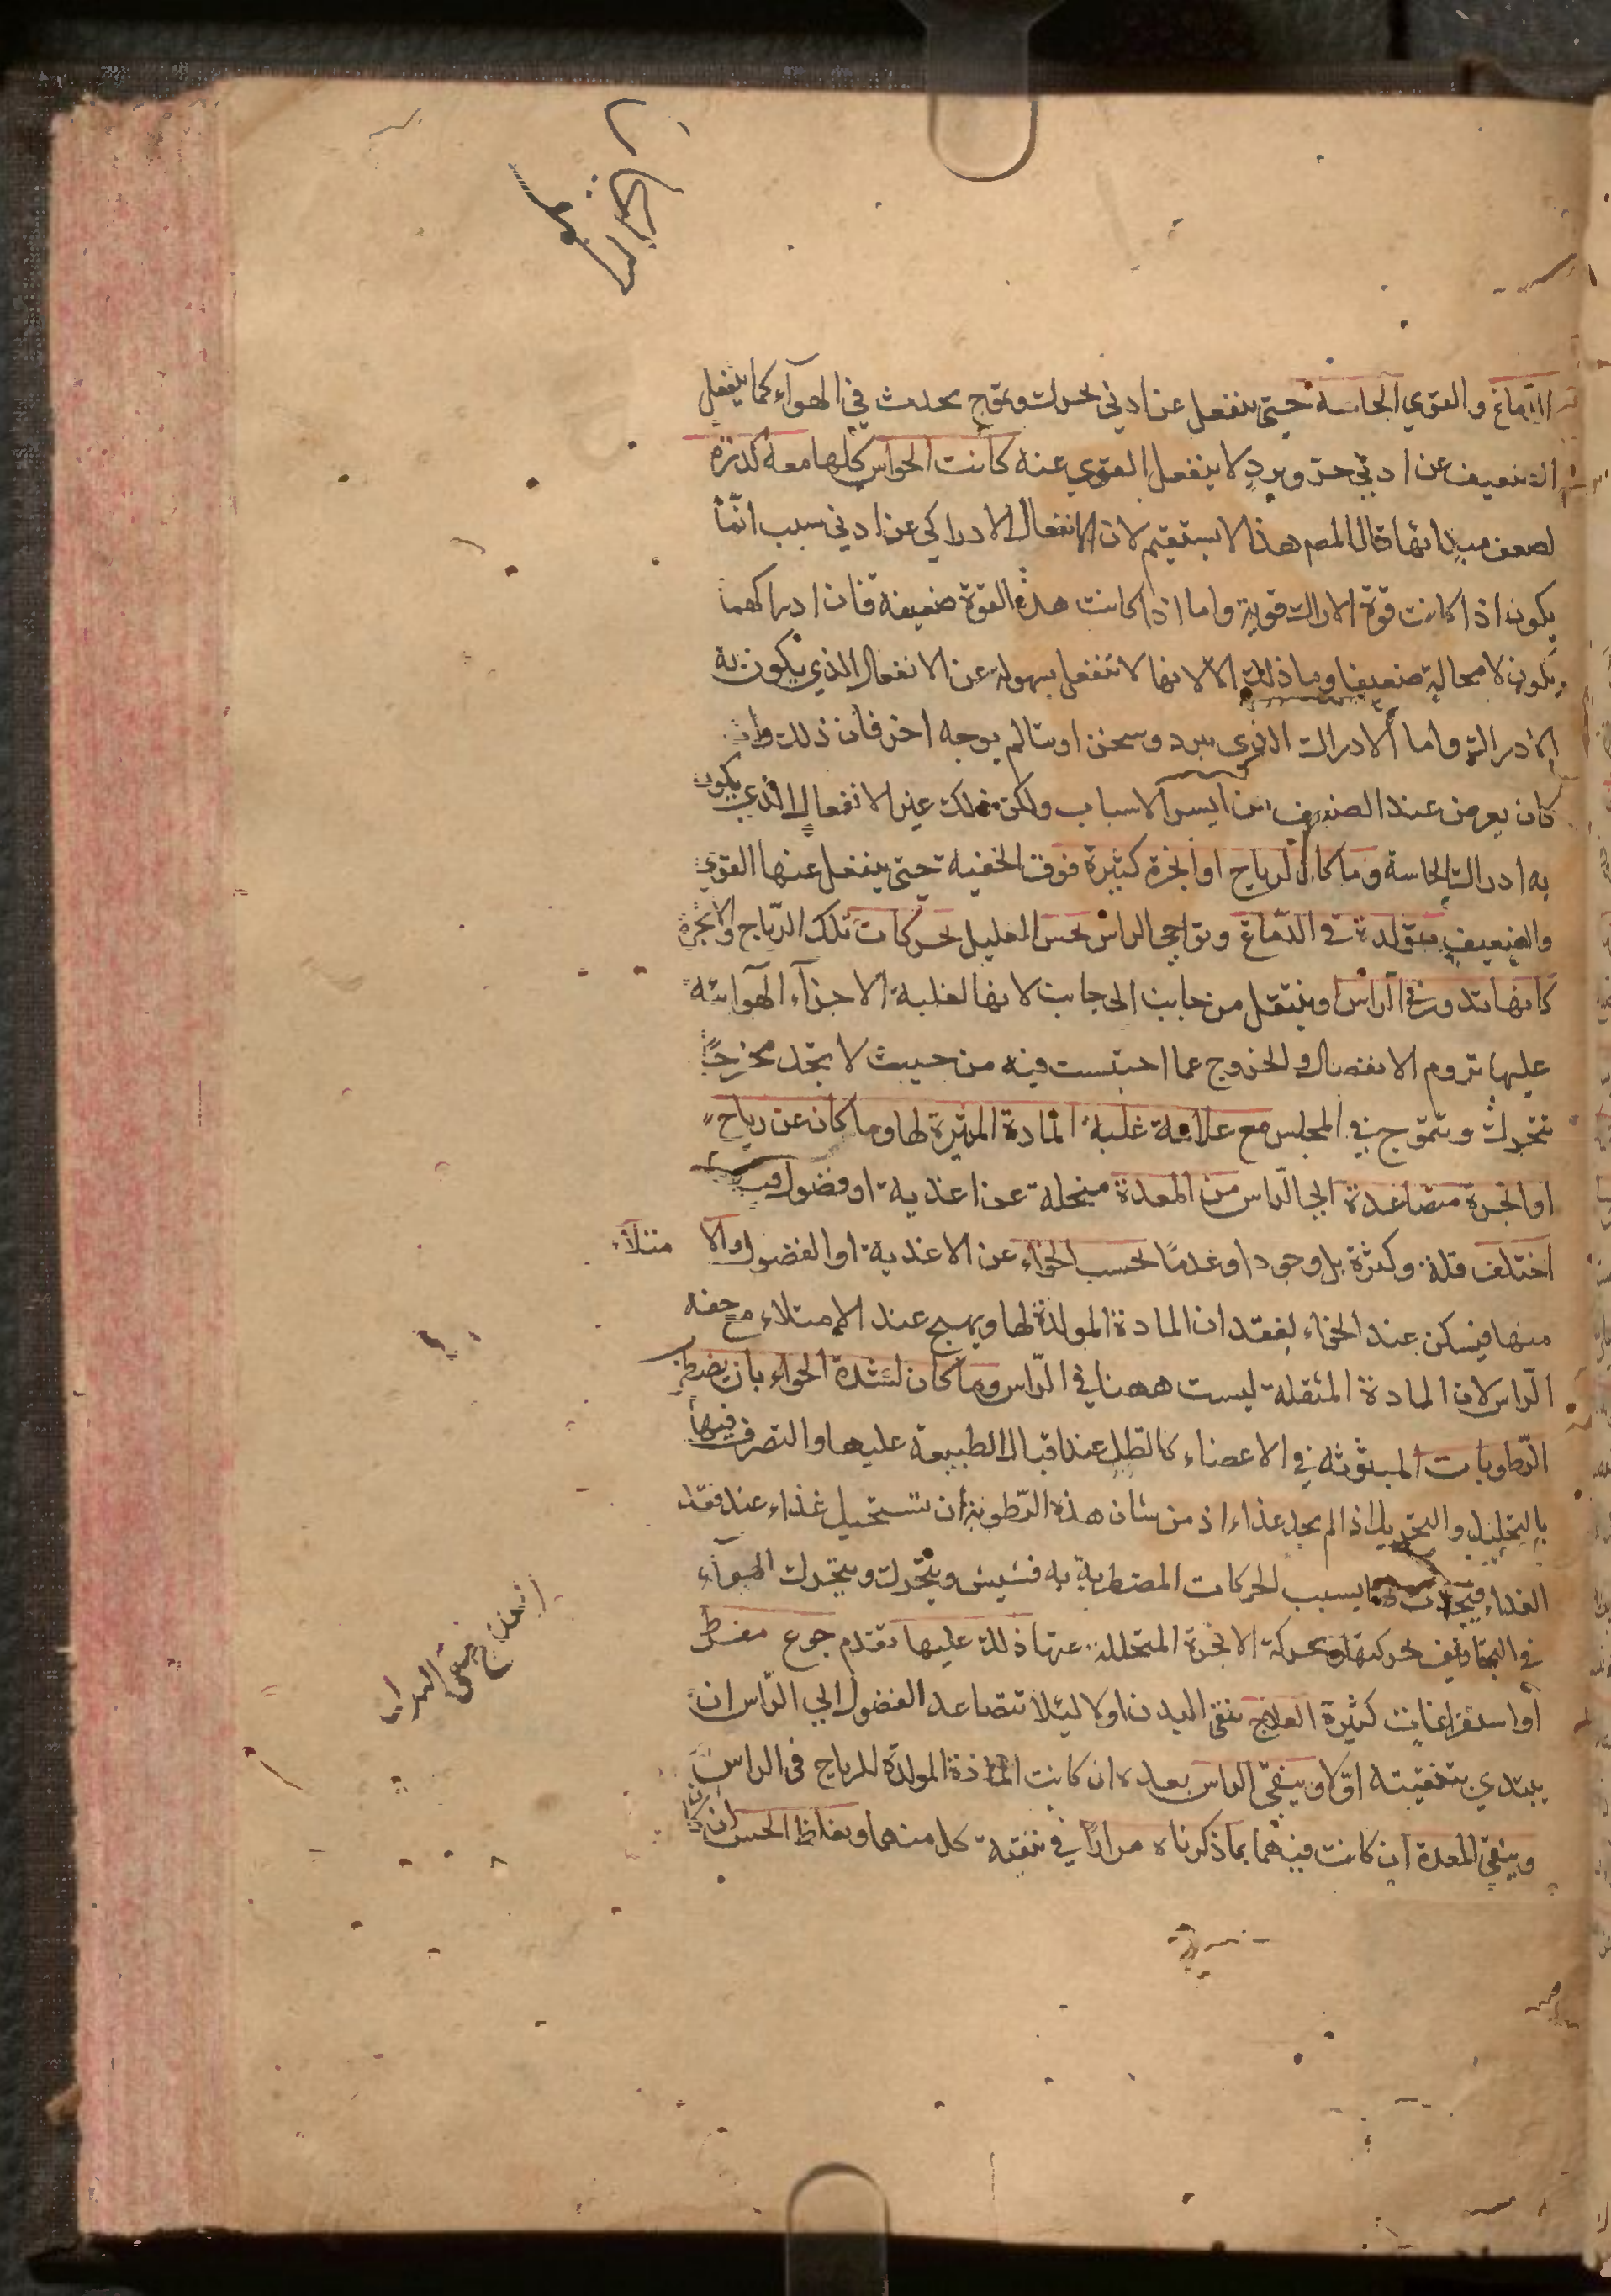 الدماغ والقوي الحاسة حتى ينفعل عن ادني تحرك وتموج يحدث في الهوآء كما ينفعل
الضعيف عن ادني حر وبرد لا ينفعل القوي عنه كانت الحواس كلها معه كدرة
لضعف مبدائها قال المصر هذا لا يستقيم لان الانفعال الادراكي عن ادني سبب انما
يكون اذا كانت قوة الادراك قوية واما اذا كانت هذه القوة ضعيفة فان ادراكهما
يكون لا محالة ضعيفا وما ذلك الا لانها لا تنفعل بسهولة عن الانفعال الذي يكون به
الادراك واما الادراك الذي يبرد ويسخن او يتالم بوجه اخر فان ذلك وان
كان يعرض عند الضعيف من ايسر الاسباب ولكن ذلك غير الانفعال الذي يكون
به ادراك الحاسة وما كان لرياح او ابخرة كثيرة فوق الخفية حتى ينفعل عنها القوي
والضعيف متولدة في الدماغ ونواحي الراس يحس العليل بحركات تلك الرياح والابخرة
كانها تدور في الراس وينتقل من جانب الى جانب لانها لغلبة الاجزآء الهوآئية
عليها تروم الانفصال والخروج عما احتبست فيه من حيث لا يجد مخرجًا
تتحرك وتتموج في المجلس مع علامة غلبة المادة المثيرة لها وما كان عن رياح
او ابخرة متصاعدة الي الراس من المعدة منحلة عن اغذية او فضول فيها
اختلف قلة وكثرة بل وجودا وعدمًا بحسب الخواء عن الاغذية او الفضول والامتلآء
منها فيسكن عند الخواء لفقدان المادة المولدة لها ويهيج عند الامتلاء مع خفة
الراس لان المادة المثقلة ليست ههنا في الراس وما كان لشدة الخواء بان يضطرب
الرطوبات المبثوثة في الاعضاء كالطل عند اقبال الطبيعة عليها والتصرف فيها
بالتحليل والتحريك اذا لم يجد غذاء اذ من شان هذه الرطوبة ان تستحيل غذاء عند فقد
الغذاء بسبب الحركات المضطربة به فتنش ويتحرك ويتحرك الهوآء
في التجاويف بحركتها وبحركة الابخرة المتحللة عنها ذلك عليها تقدم جوع مفرط
او استفراغات كثيرة العلاج ينقي البدن اولا ليلا تتصاعد الفضول الي الراس ان
يبتدي بتنقيته اولا وينقي الراس بعده ان كانت المادة المولدة للرياح في الراس
وينقي المعدة ان كانت فيهما بما ذكرناه مرارًا في تنقية كل منهما ويغلظ الحس ان كان